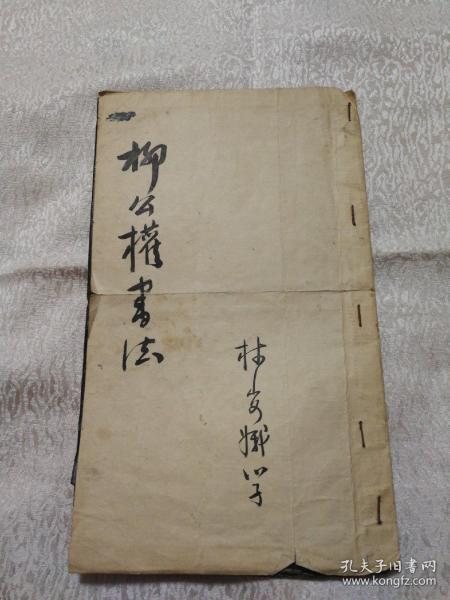 柳公權書法
林
孔夫子旧书网
www.kongfz.com